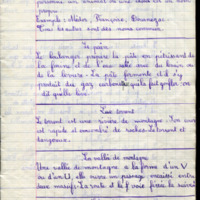 personne un animal ou une chose est un nom
propre.
Exemple : Médor, Françoise, Dimanche.
Tous les autres sont des noms communs.
Le pain
Le boulanger prépare la pâte en pétrissant de
la farine et de l'eau salée avec du levain ou
de la levure. La pâte fermente et il s'y
produit des gaz carbonique qui fait gonfler on
dit qu'elle lève.
Les torrent
Le torrent est une rivière de montagne. Son cours
est rapide et encombré de roches. Le torrent est
dangereux.
La vallée de montagne
Une vallée de montagne a la forme d'un V
ou d'un U, elle ouvre un passage encaissé entre
deux massifs. La route et la voie ferrée la suivent